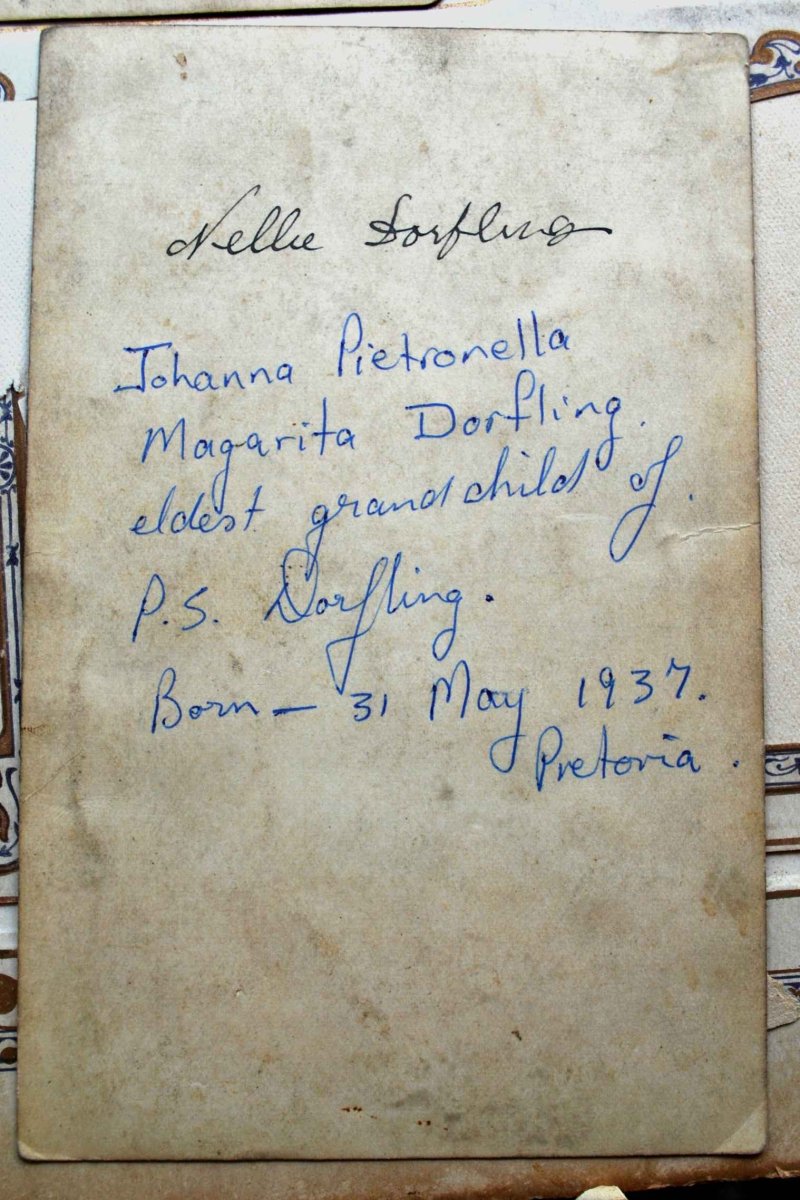 Nellie Dorfling
Johanna Pietronella
Magarita Dorfling.
eldest grandchild of.
P.S. Dorfling.
Born — 31 May 1937.
Pretoria.